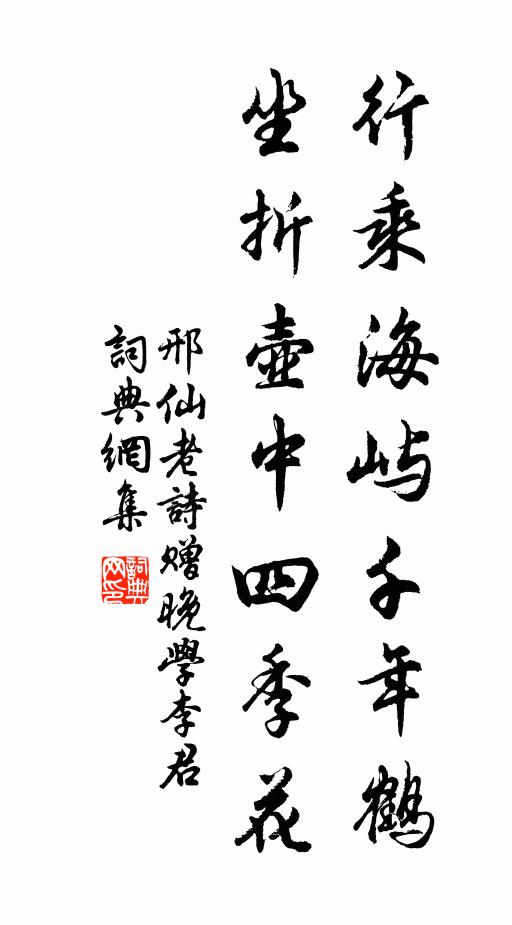 行乘海屿千年鹤
坐折壺中四季花
邢仙老詩贈晚學李君
詞典網集
詞典網印